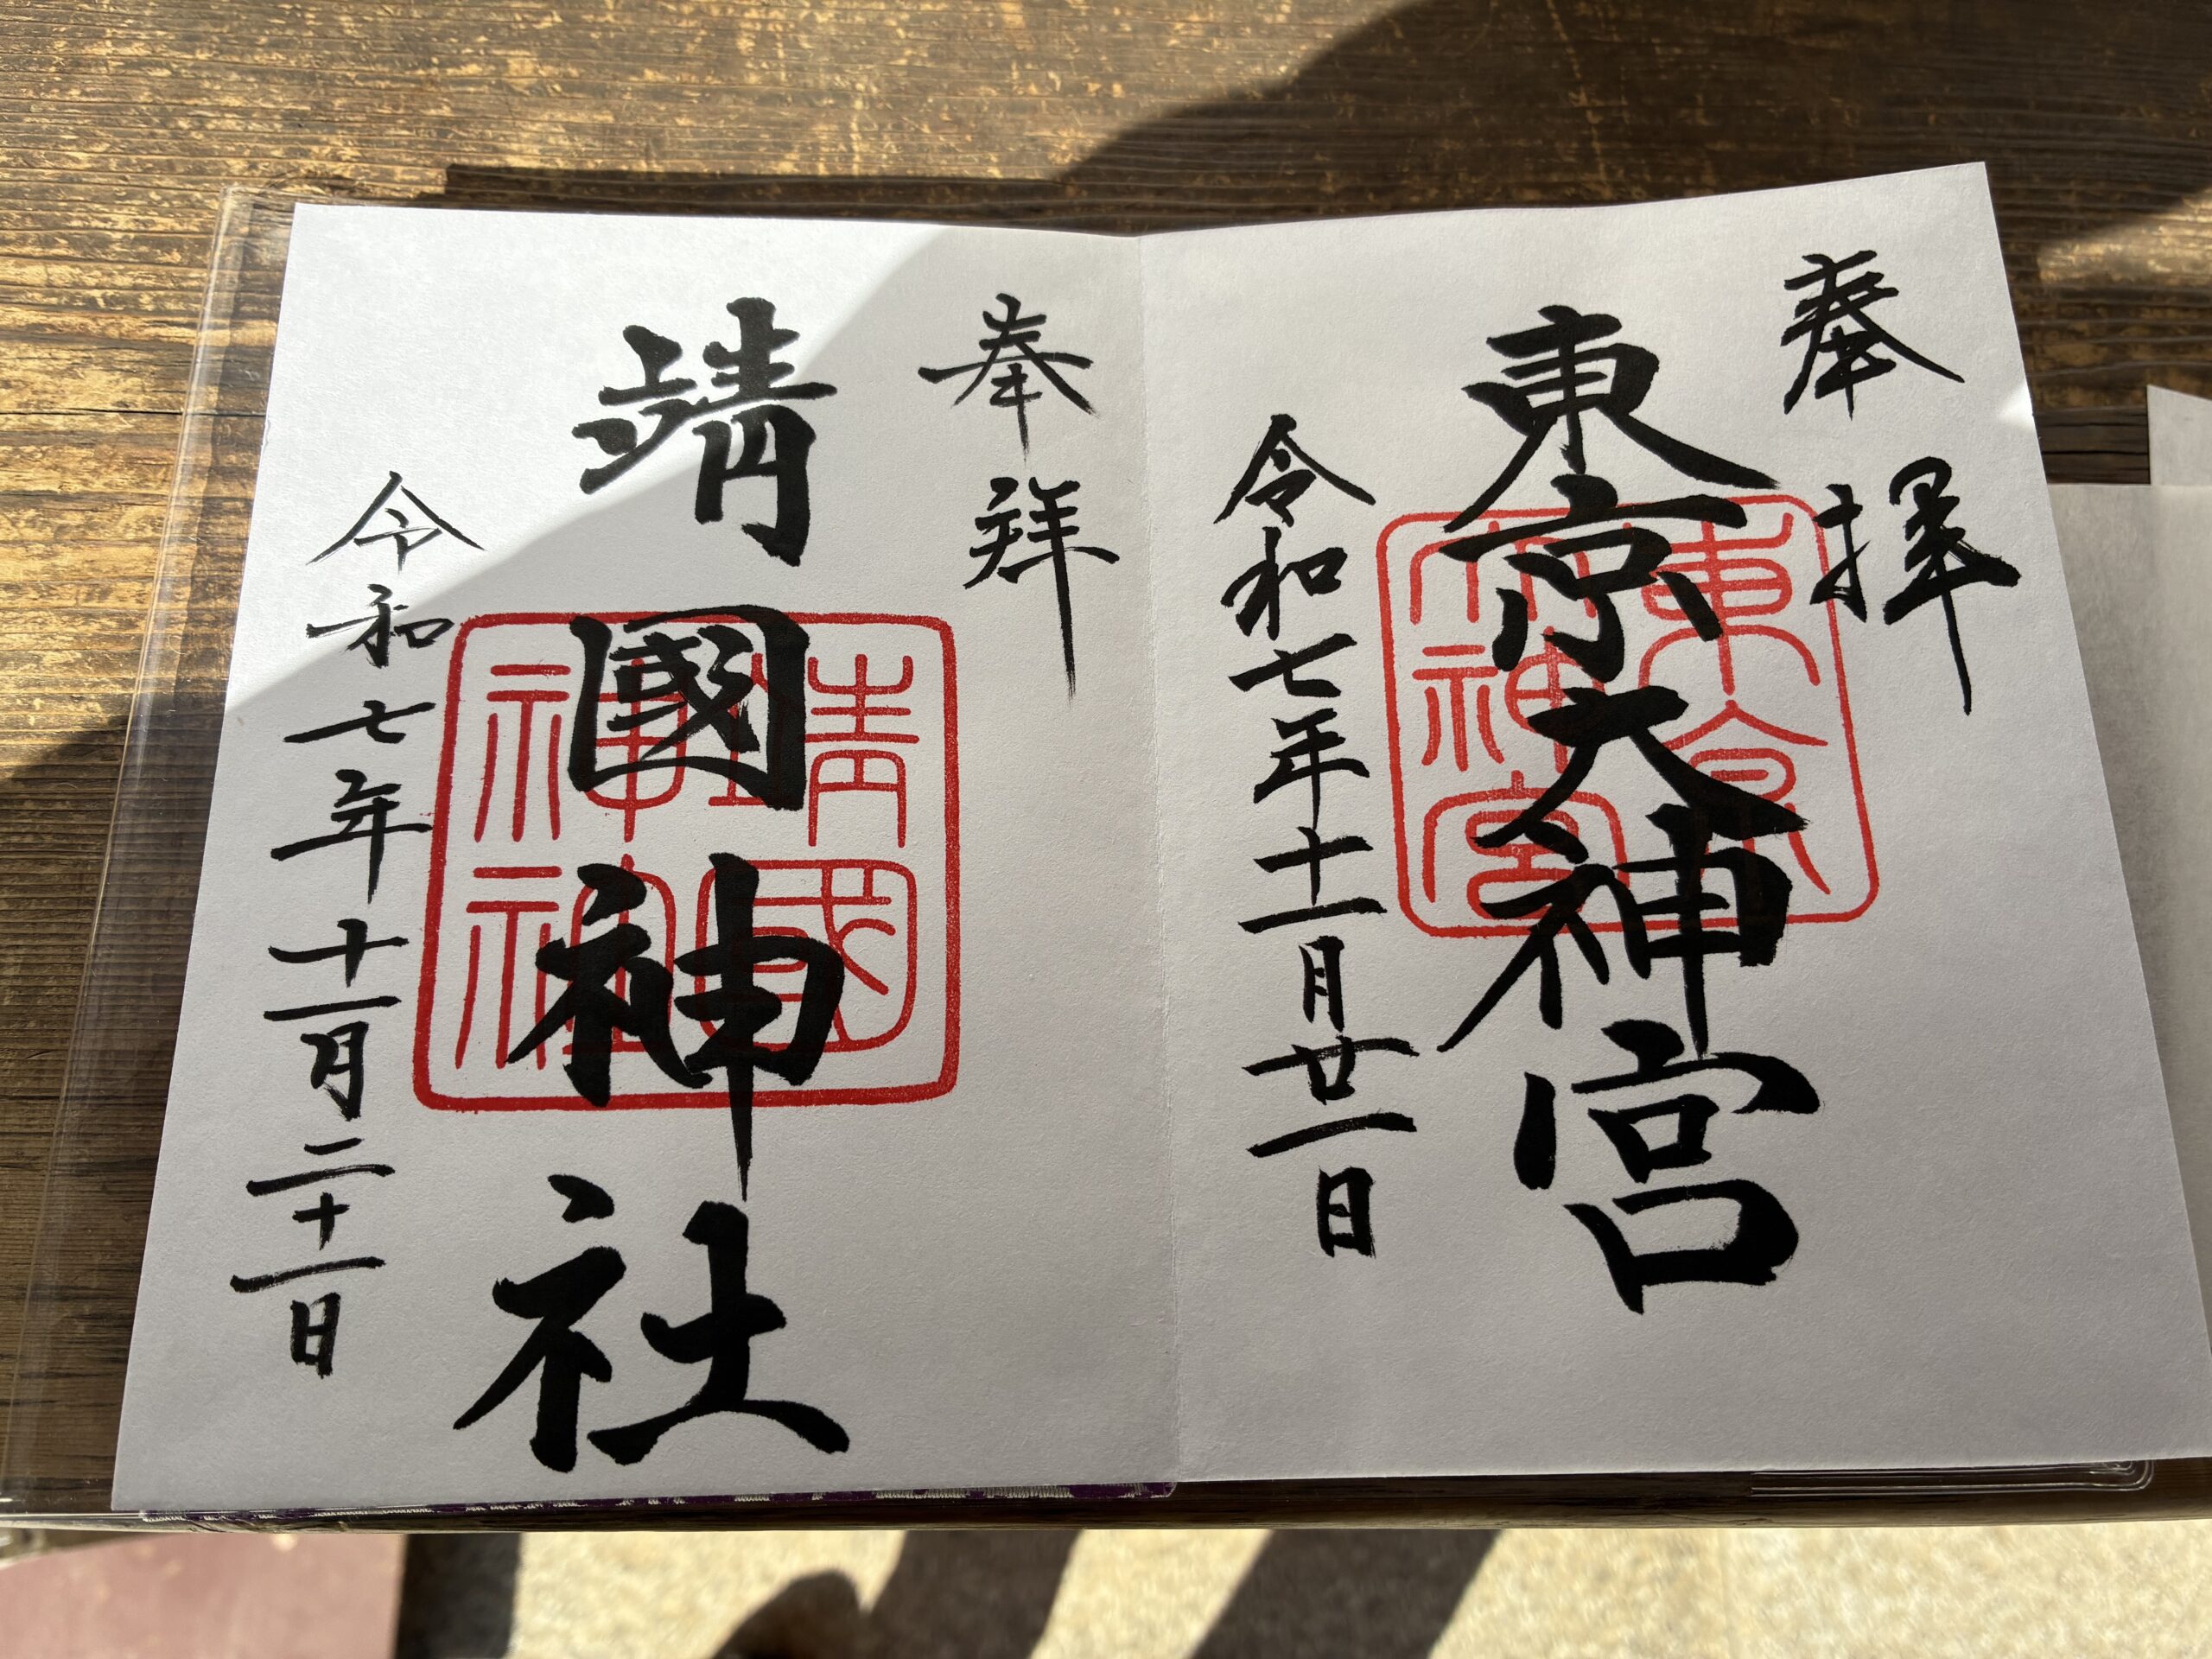 奉拝
東京大神宮
令和七年十一月廿一日
東京大神宮
奉拝
靖國神社
令和七年十一月二十一日
靖國神社